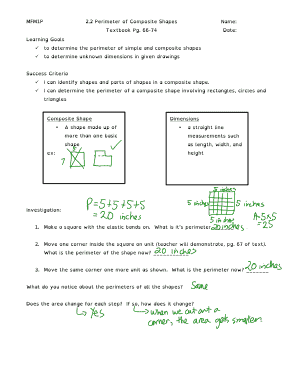 MFM1P 2.2 Perimeter of Composite Shapes Name:
Textbook Pg. 66-74 Date:
Learning Goals
✓ to determine the perimeter of simple and composite shapes
✓ to determine unknown dimensions in given drawings
Success Criteria
✓ I can identify shapes and parts of shapes in a composite shape.
✓ I can determine the perimeter of a composite shape involving rectangles, circles and
triangles
Composite Shape
• A shape made up of
more than one basic
shape
ex:
Dimensions
• a straight line
measurements such
as length, width, and
height
5 inches
5 inches 5 inches
5 inches
A=5x5
=25
P=5+5+5+5
=20 inches
Investigation:
1. Make a square with the elastic bands on. What is it's perimeter? 20 inches
2. Move one corner inside the square on unit (teacher will demonstrate, pg. 67 of text).
What is the perimeter of the shape now? 20 inches
3. Move the same corner one more unit as shown. What is the perimeter now? 20 inches
What do you notice about the perimeters of all the shapes? Same
Does the area change for each step? If so, how does it change?
Yes
when we cut out a
corner, the area gets smaller.